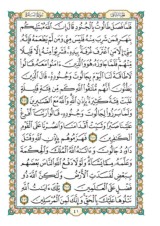 فَلَمَّا فَصَلَ طَالُوتُ بِالْجُنُودِ قَالَ إِنَّ اللَّهَ مُبْتَلِيكُم
بِنَهَرٍ فَمَن شَرِبَ مِنْهُ فَلَيْسَ مِنِّي وَمَن لَّمْ يَطْعَمْهُ فَإِنَّهُ
مِنِّي إِلَّا مَنِ اغْتَرَفَ غُرْفَةً بِيَدِهِ فَشَرِبُوا مِنْهُ إِلَّا قَلِيلًا
مِّنْهُمْ فَلَمَّا جَاوَزَهُ هُوَ وَالَّذِينَ آمَنُوا مَعَهُ قَالُوا
لَا طَاقَةَ لَنَا الْيَوْمَ بِجَالُوتَ وَجُنُودِهِ قَالَ الَّذِينَ
يَظُنُّونَ أَنَّهُم مُّلَاقُو اللَّهِ كَم مِّن فِئَةٍ قَلِيلَةٍ
غَلَبَتْ فِئَةً كَثِيرَةً بِإِذْنِ اللَّهِ وَاللَّهُ مَعَ الصَّابِرِينَ
وَلَمَّا بَرَزُوا لِجَالُوتَ وَجُنُودِهِ قَالُوا رَبَّنَا أَفْرِغْ
عَلَيْنَا صَبْرًا وَثَبِّتْ أَقْدَامَنَا وَانصُرْنَا عَلَى الْقَوْمِ
الْكَافِرِينَ فَهَزَمُوهُم بِإِذْنِ اللَّهِ وَقَتَلَ
دَاوُودُ جَالُوتَ وَآتَاهُ اللَّهُ الْمُلْكَ وَالْحِكْمَةَ
وَعَلَّمَهُ مِمَّا يَشَاءُ وَلَوْلَا دَفْعُ اللَّهِ النَّاسَ بَعْضَهُم
بِبَعْضٍ لَّفَسَدَتِ الْأَرْضُ وَلَٰكِنَّ اللَّهَ ذُو
فَضْلٍ عَلَى الْعَالَمِينَ تِلْكَ آيَاتُ اللَّهِ
نَتْلُوهَا عَلَيْكَ بِالْحَقِّ وَإِنَّكَ لَمِنَ الْمُرْسَلِينَ
٤١